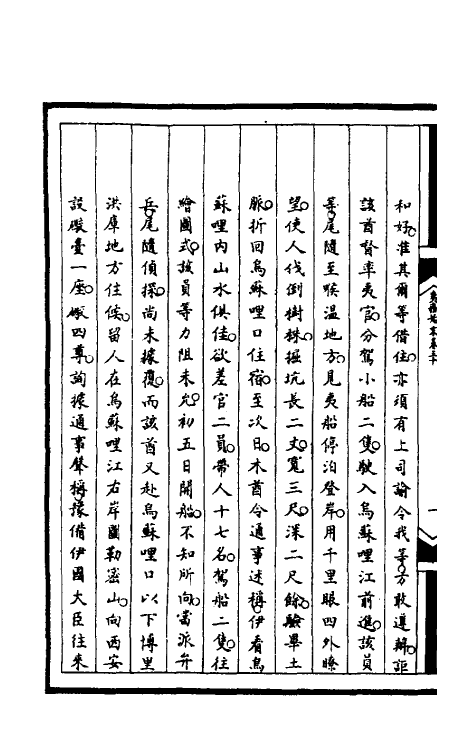 和好。准其爾等借住。亦須有上司諭令我等。方敢遵辦。詎
該酋督率夷官。分駕小船二隻。駛入烏蘇哩江前進。該員
等尾隨至喉温地方。見夷船停泊登岸。用千里眼四外瞭
望。使人伐倒樹株。掘坑長二丈。寬三尺。深二尺餘。驗畢土
脈。折回烏蘇哩口住宿。至次日。木酋令通事述稱。伊看烏
蘇哩内山水俱佳。欲差官二員。帶人十七名。駕船二隻。往
繪圖式。該員等力阻未允。初五日開船。不知所向。當派弁
兵。尾隨偵探。尚未據覆。而該酋又赴烏蘇哩口以下博里
洪庫地方住候。留人在烏蘇哩江右岸圖勒密山。向西安
設礮臺一座。礮四尊。詢據通事聲稱。豫備伊國大臣往來